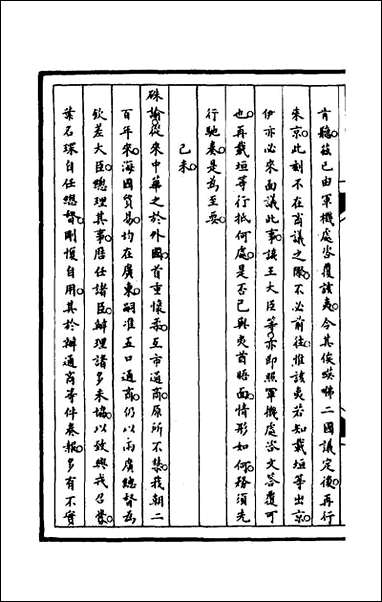 肯聽茲已由軍機處咨覆該夷令其俟暎咈二國議定後再行
來京此刻不在商議之際不必前往惟該夷若知載垣等出京
伊亦必來面議此事該王大臣等亦即照軍機處咨文答覆可
也再載垣等行抵何處是否已與夷酋晤面情形如何務須先
行馳奏是為至要
己未
硃諭從來中華之於外國首重懷柔互市通商原所不禁我朝二
百年來海國貿易均在廣東嗣准五口通商仍以兩廣總督為
欽差大臣總理其事歷任諸臣辦理諸多未協以致興戎召釁
葉名琛自任總督剛愎自用其於辦通商等件奏報多有不實